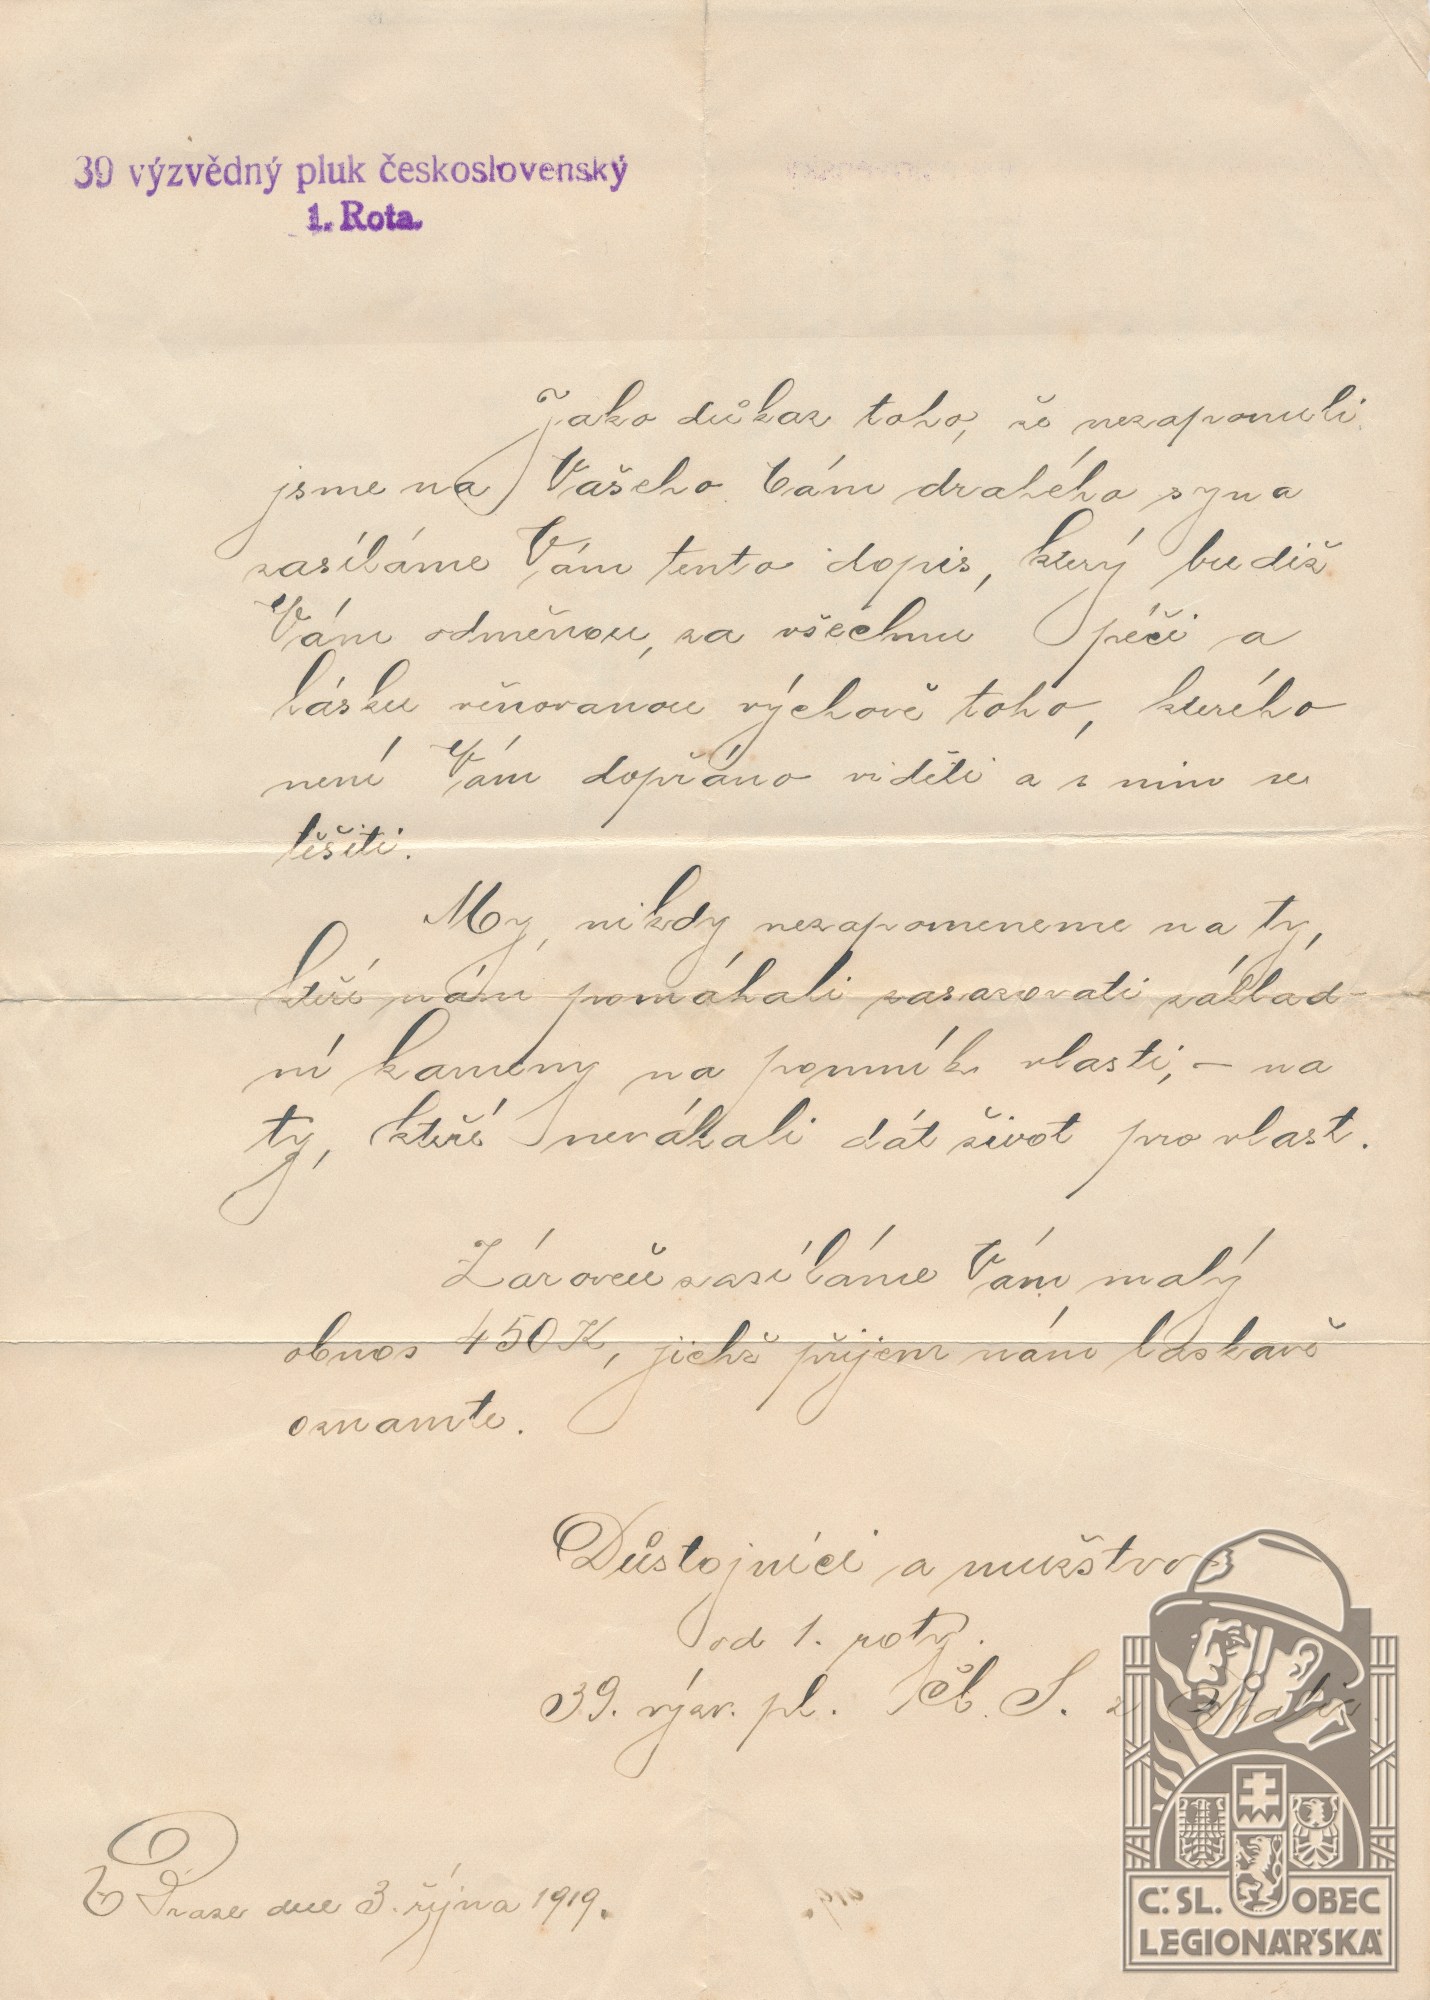 39 výzvědný pluk československý
1. Rota.
Jako důkaz toho, že nezapomněli
jsme na Vašeho Vám drahého syna
zasíláme Vám tento dopis, který budiž
Vám odměnou, za všechnu péči a
lásku věnovanou výchově toho, kterého
není Vám dopřáno viděti a s ním se
těšiti.
My, nikdy nezapomeneme na ty,
kteří nám pomáhali zasazovati základ-
ní kameny na pomník vlasti, – na
ty, kteří neváhali dát život pro vlast.
Zároveň zasíláme Vám malý
obnos 450 K, jichž příjem nám laskavě
oznamte.
Důstojníci a mužstvo
od 1. roty.
39. výzv. pl. Čs. S. z
V Praze dne 3. října 1919.
Č. SL. OBEC
LEGIONÁŘSKÁ